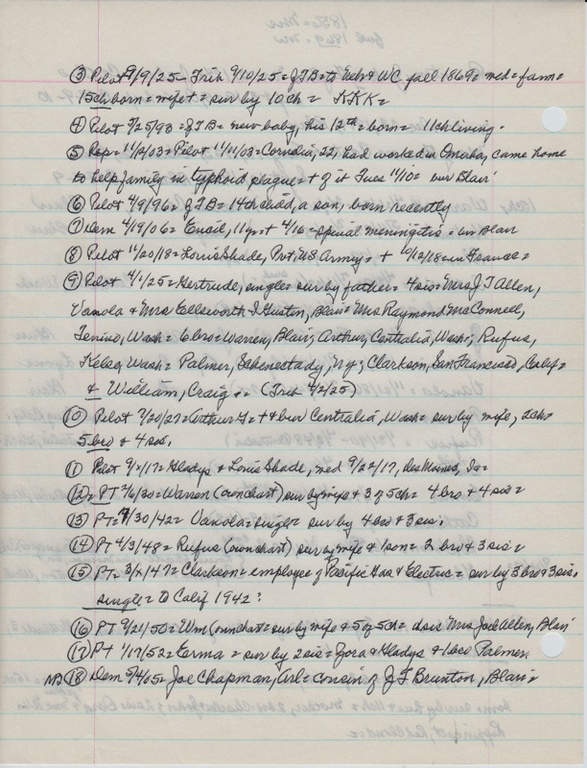 ③ Pilot 9/9/25 - Trib 9/10/25 = JTB = to Neb & WC fall 1869 = med = farm =
15ch born = wife + = sur by 10ch = KKK =
④ Pilot 3/25/93 = JTB = new baby, his 12th = born = 11ch living.
⑤ Rep = 11/12/03 = Pilot 11/11/03 = Cornelia, 22, had worked in Omaha, came home
to help family in typhoid plague = + of it Tues 11/10 = our Blair
⑥ Pilot 4/9/96 = JTB = 14th child, a son, born recently
⑦ Dem 4/19/06 = Enail, 11yr + 4/16 = spinal meningitis = in Blair
⑧ Pilot 11/20/18 = Louis Shade, Pvt, US Army = + 10/12/18 in France =
⑨ Pilot 4/1/25 = Gertrude, single = sur by father = 4 sis = Mrs JT Allen,
Vanola & Mrs Ellsworth I Gustin, Blair = Mrs Raymond McConnell,
Tenino, Wash = 6 bro = Warren, Blair; Arthur, Centralia, Wash; Rufus,
Kelso, Wash = Palmer, Schenectady, NY; Clarkson, San Francisco, Calif =
& William, Craig = (Trib 4/2/25)
⑩ Pilot 7/20/27 = Arthur = + & bur Centralia, Wash = sur by wife, 2ch =
5 bro & 4 sis.
⑪ Pilot 9/2/17 = Gladys & Louis Shade, med 9/22/17, Des Moines, Ia =
⑫ = PT 2/6/30 = Warren (own chart) sur by wife & 3 of 5ch = 4 bro & 4 sis =
⑬ PT = 4/30/42 = Vanola = single = sur by 4 bro & 3 sis.
⑭ PT 4/3/48 = Rufus (own chart) sur by wife & 1 son = 2 bro & 3 sis =
⑮ PT = 3/ /47 = Clarkson = employee of Pacific Gas & Electric = sur by 3 bro & 3 sis,
single = to Calif 1942?
⑯ PT 9/21/50 = Wm (own chart = sur by wife & 5 of 5ch = sis Mrs Jack Allen, Blair
⑰ PT 1/17/52 = Erma = sur by 2 sis = Zora & Gladys & 1 bro Palmer
⑱ Dem 5/4/05 = Joe Chapman, Arl = cousin of JT Brunton, Blair =